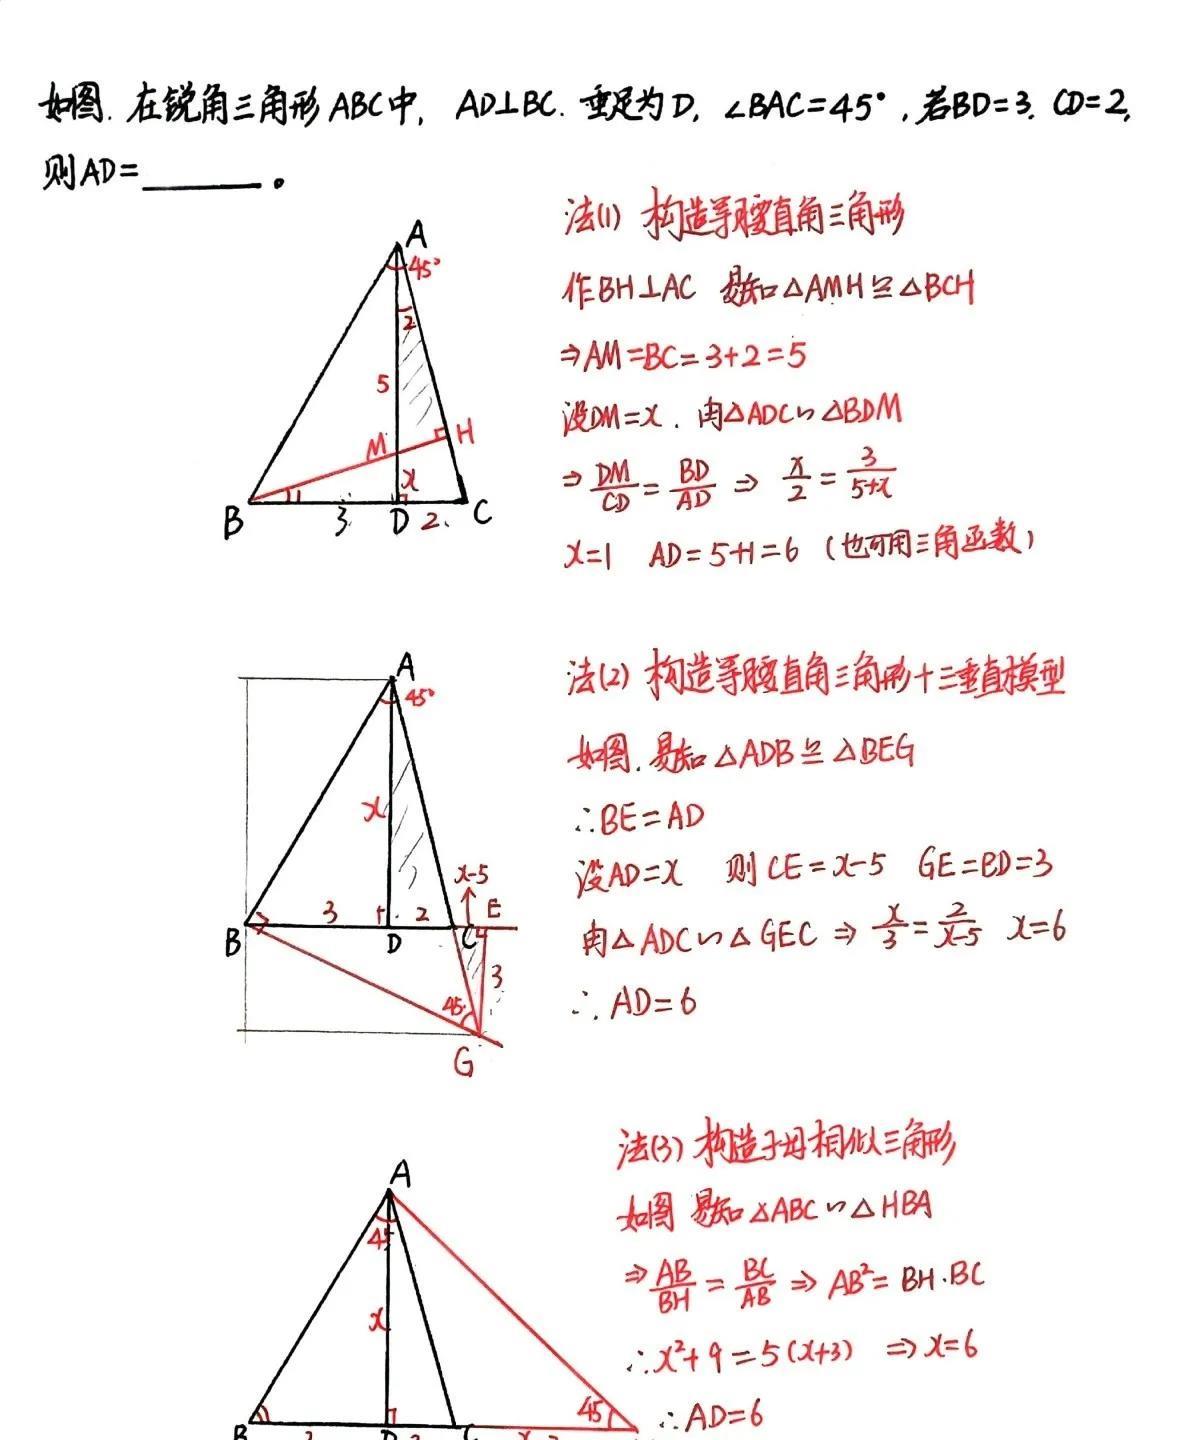 如图.在锐角三角形ABC中, AD⊥BC.垂足为D, ∠BAC=45°,若BD=3. CD=2,
则AD=______。
法(1) 构造等腰直角三角形
作BH⊥AC 易知△AMH≌△BCH
⇒AM=BC=3+2=5
设DM=x. 由△ADC∽△BDM
⇒ DM/CD = BD/AD ⇒ x/2 = 3/(5+x)
x=1 AD=5+1=6 (也可用三角函数)
A
45°
2
5
M
H
x
B
3
D
2
C
法(2) 构造等腰直角三角形+三垂直模型
如图.易知△ADB≌△BEG
∴BE=AD
设AD=x 则CE=x-5 GE=BD=3
由△ADC∽△GEC ⇒ x/3 = 2/(x-5) x=6
∴AD=6
A
45°
x
x-5
3
2
E
B
D
C
3
45°
G
法(3) 构造子母相似三角形
如图 易知△ABC∽△HBA
⇒ AB/BH = BC/AB ⇒ AB²=BH·BC
∴x²+9=5(x+3) ⇒x=6
∴AD=6
A
45
x
45
B
D
C